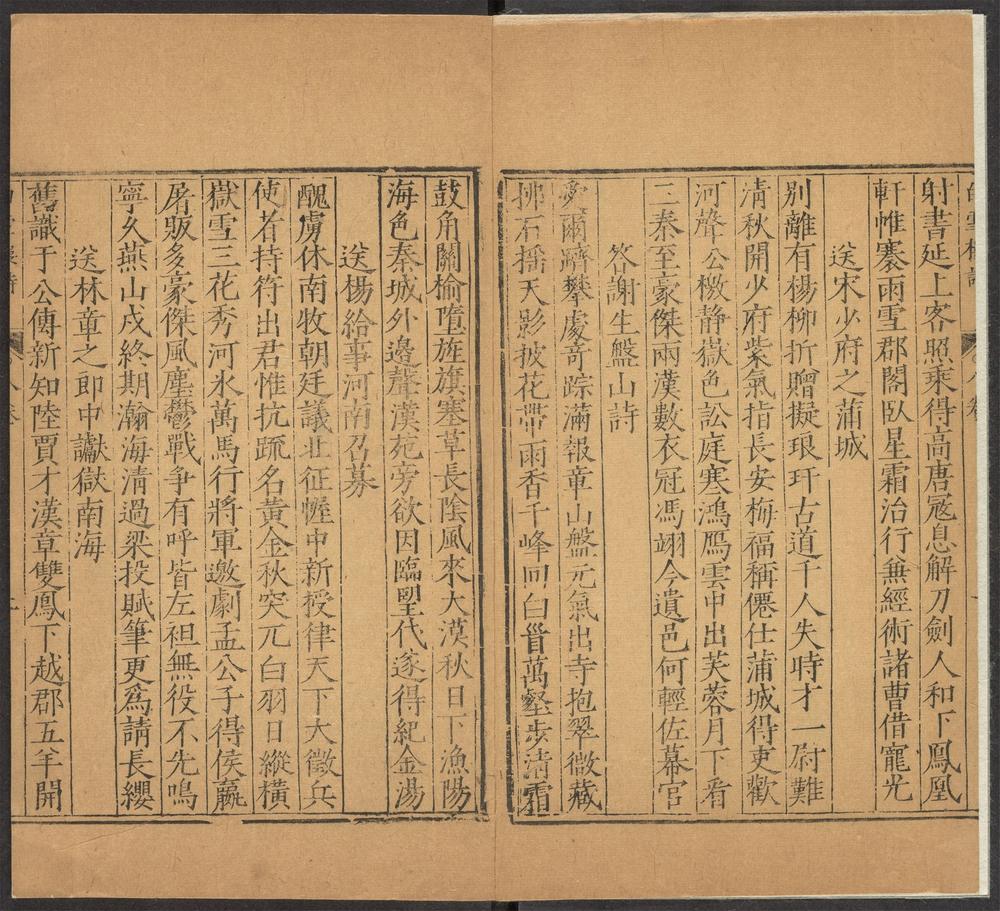 射書延上客照乘得高唐冦息解刀劍人和下鳳凰
軒帷褰雨雪郡閣臥星霜治行兼經術諸曹借寵光
送宋少府之蒲城
別離有楊柳折贈擬琅玕古道千人失時才一尉難
淸秋開少府紫氣指長安梅福稱僊仕蒲城得更歡
河聲公檄静嶽色訟庭寒鴻鴈雲中出芙蓉月下看
三秦至豪傑兩漢數衣冠馮翊今遺邑何輕佐幕官
答謝生盤山詩
愛爾躋攀處奇踪滿報章山盤元氣出寺抱翠微藏
拂石揺天影披花帶雨香千峰回白首萬壑步清霜
鼓角關榆墮旌旗塞草長陰風來大漠秋日下漁陽
海色秦城外邊聲漢苑旁欲因臨望代遂得紀金湯
送楊給事河南召募
醜虜休南牧朝廷議北征幄中新授律天下大徵兵
使者持符出君惟抗䟽名黃金秋突兀白羽日縱橫
嶽雪三花秀河氷萬馬行將軍邀劇孟公子得侯嬴
屠販多豪傑風塵鬱戰争有呼皆左袒無役不先鳴
寧久燕山戍終期瀚海淸過梁投賦筆更爲請長纓
送林章之郎中讞獄南海
舊識于公傳新知陸賈才漢章雙鳳下越郡五羊開